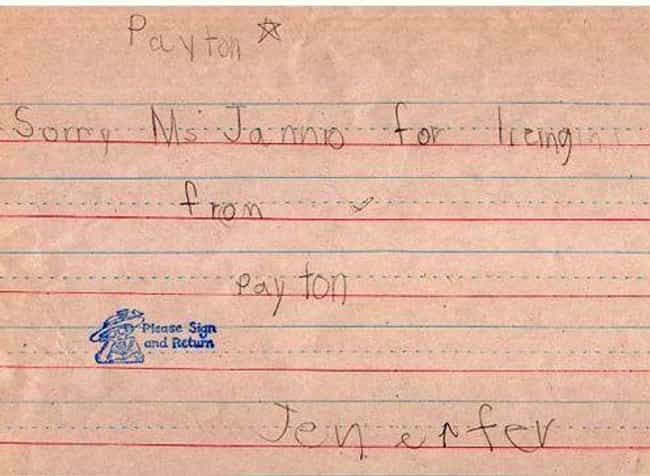 Payton
Sorry Ms Janno for lieing
fron
payton
Please Sign
and Return
Jenerfer